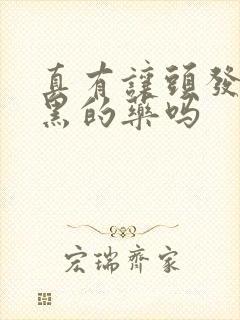 真有讓頭發
黑的藥嗎
宏瑞齊家